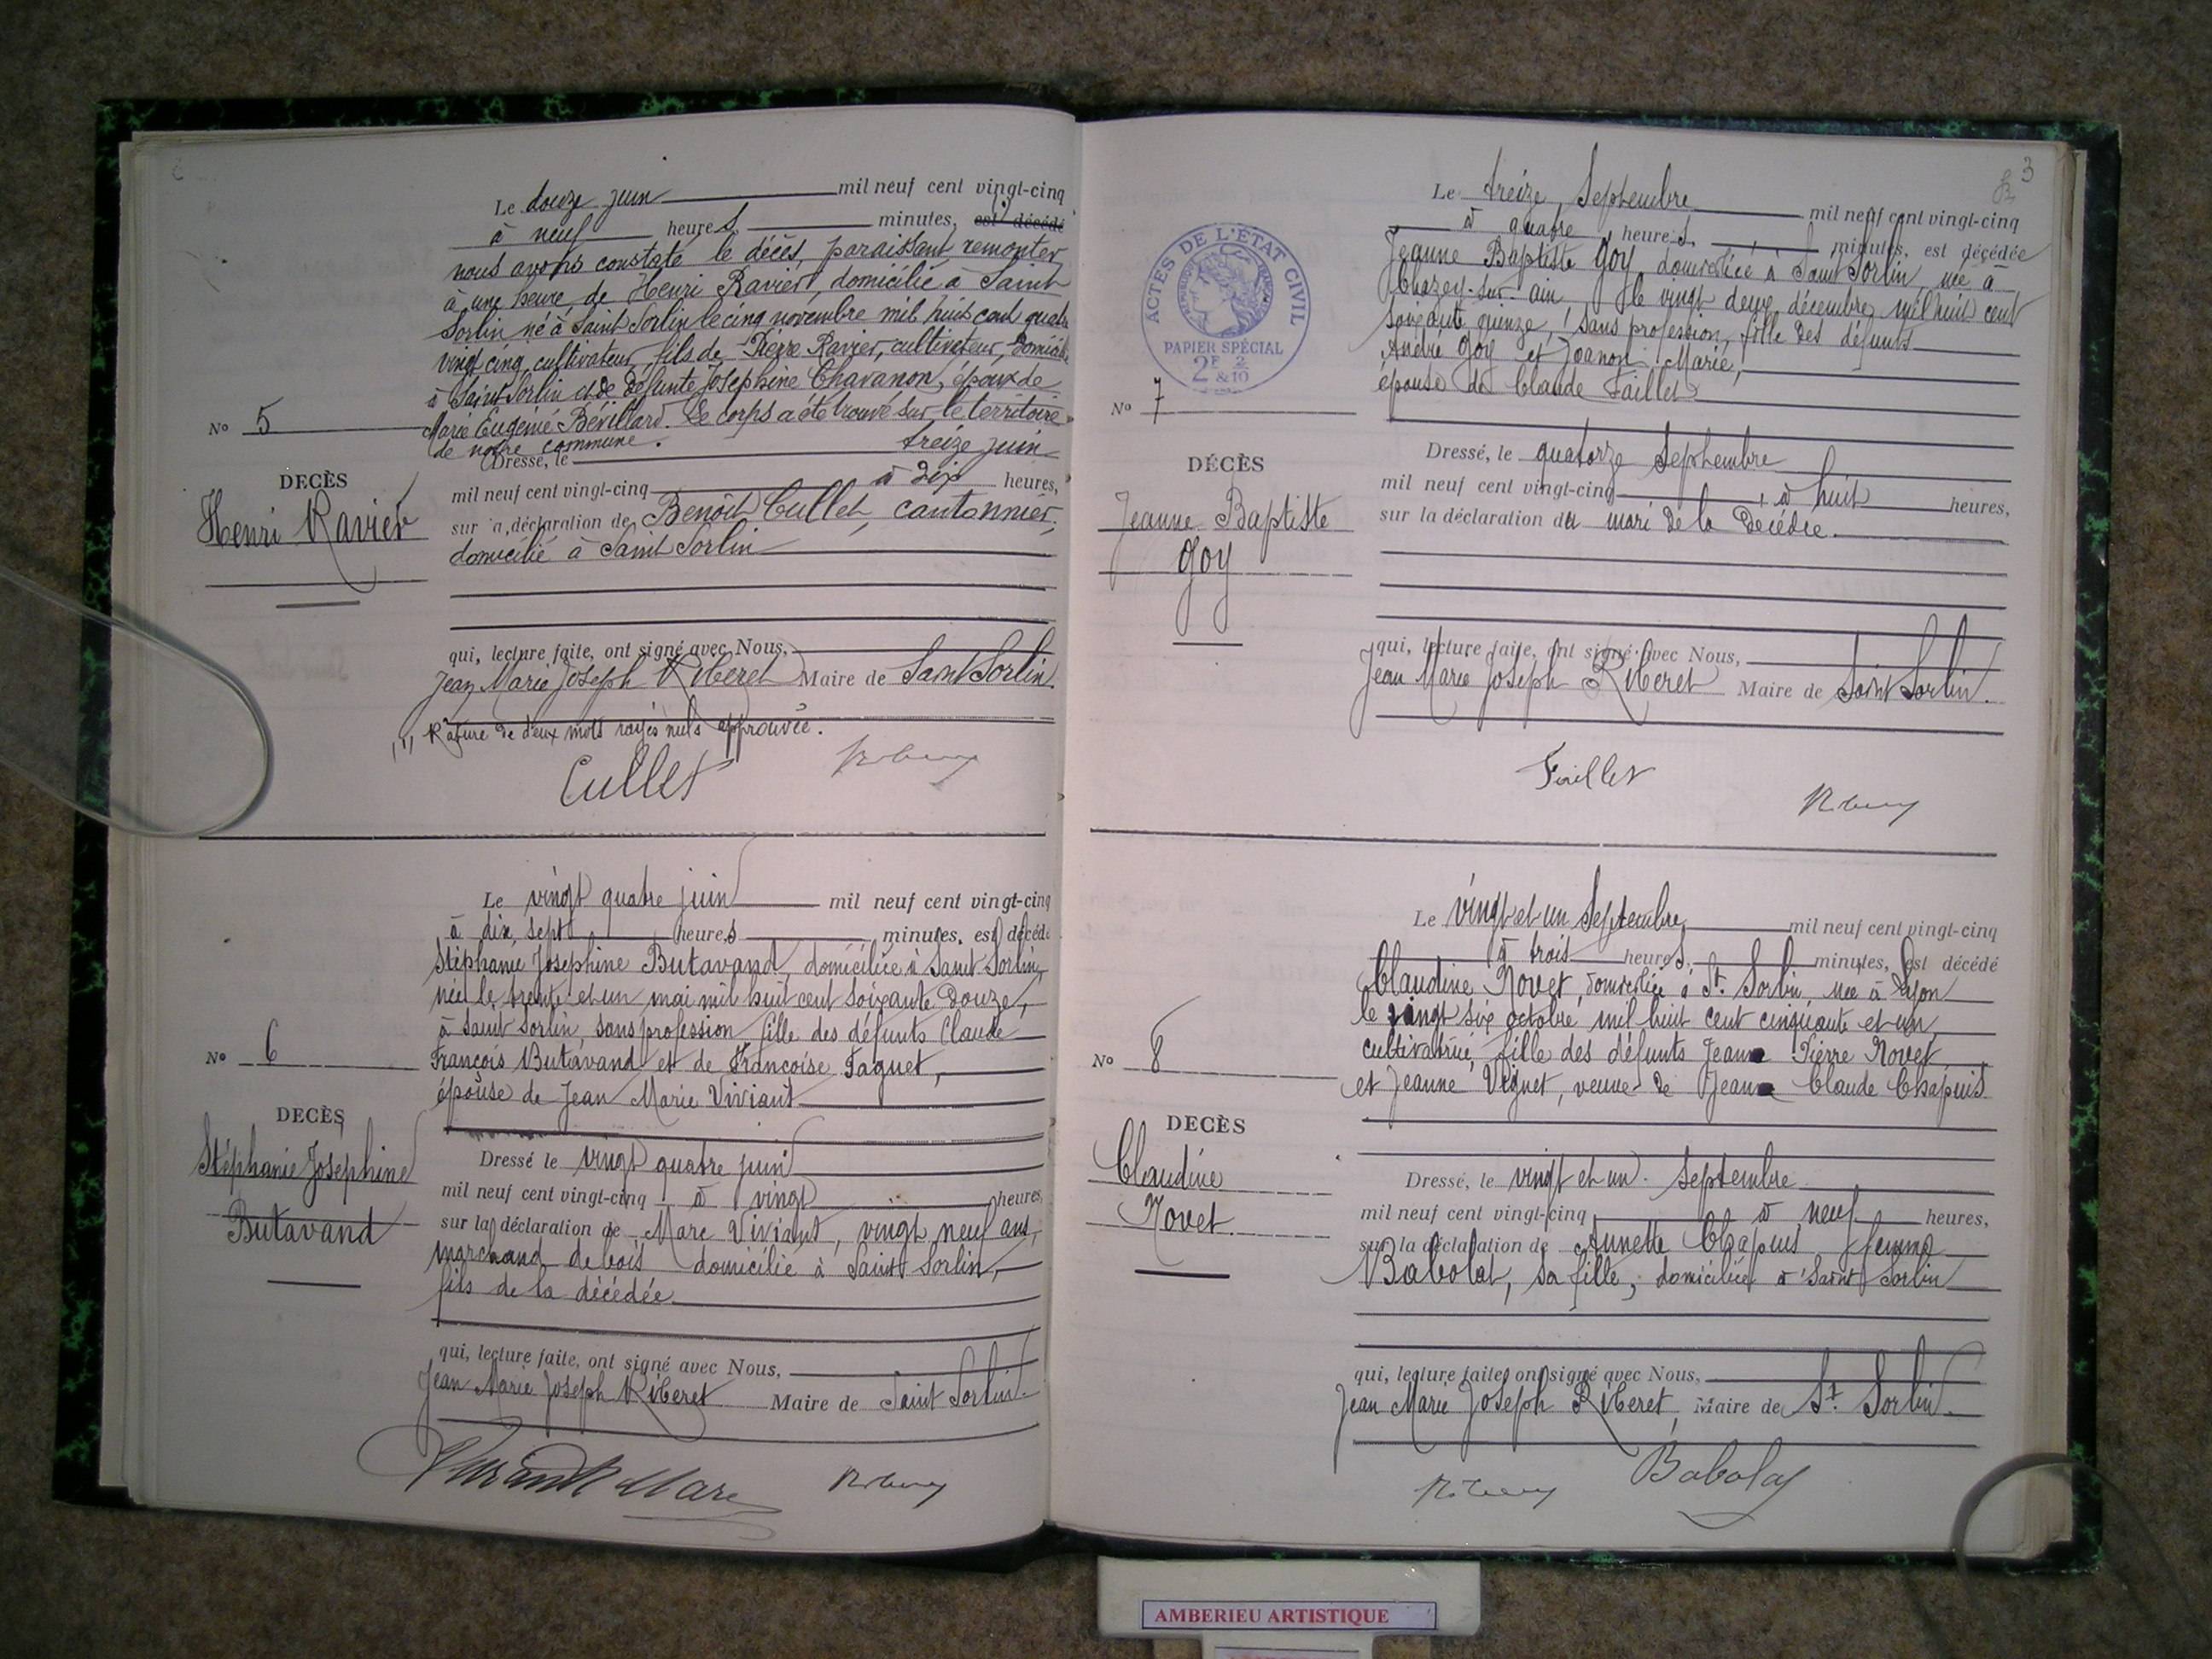 Le douze juin mil neuf cent vingt-cinq
à neuf heures minutes, est décédé
nous avons constaté le décès, paraissant remonter
à une heure, de Henri Ravier, domicilié à Saint
Sorlin né à Saint Sorlin le cinq novembre mil huit cent quatre
vingt cinq, cultivateur, fils de Pierre Ravier, cultivateur, domicilié
à Saint Sorlin et de défunte Josephine Chavanon, époux de
Marie Eugénie Bévillard. Le corps a été trouvé sur le territoire
de notre commune.
No 5
DECÈS
Henri Ravier
Dressé, le treize juin
mil neuf cent vingt-cinq à dix heures,
sur la déclaration de Benoît Cullet, cantonnier,
domicilié à Saint Sorlin
qui, lecture faite, ont signé avec Nous,
Jean Marie Joseph Riberet Maire de Saint Sorlin.
Rature de deux mots rayés nuls approuvée.
Cullet
Le vingt quatre juin mil neuf cent vingt-cinq
à dix sept heures minutes, est décédé
Stéphanie Josephine Butavand, domiciliée à Saint Sorlin,
née le trente et un mai mil huit cent soixante douze,
à Saint Sorlin, sans profession fille des défunts Claude
François Butavand et de Françoise Faguet,
épouse de Jean Marie Viviant
No 6
DECÈS
Stéphanie Josephine
Butavand
Dressé le vingt quatre juin
mil neuf cent vingt-cinq à vingt heures
sur la déclaration de Marc Viviant, vingt neuf ans,
marchand de bois domicilié à Saint Sorlin,
fils de la décédée
qui, lecture faite, ont signé avec Nous,
Jean Marie Joseph Riberet Maire de Saint Sorlin.
Viviant Marc
3
Le treize Septembre mil neuf cent vingt-cinq
à quatre heures minutes, est décédée
Jeanne Baptiste Goy domiciliée à Saint Sorlin, née à
Chazey-sur-ain le vingt deux décembre mil huit cent
soixante quinze, sans profession, fille des défunts
André Goy et Joanon Marie,
épouse de Claude Faillet
ACTES DE L'ÉTAT CIVIL
PAPIER SPÉCIAL
2F 2/10
No 7
DÉCÈS
Jeanne Baptiste
Goy
Dressé, le quatorze Septembre
mil neuf cent vingt-cinq, à huit heures,
sur la déclaration du mari de la Décédée.
qui, lecture faite, ont signé avec Nous,
Jean Marie Joseph Riberet Maire de Saint Sorlin.
Faillet
Le vingt et un Septembre mil neuf cent vingt-cinq
à trois heures, minutes, est décédé
Claudine Novet, domiciliée à St. Sorlin, née à Lyon
le vingt six octobre mil huit cent cinquante et un,
cultivatrice, fille des défunts Jean Pierre Novet
et Jeanne Vignet, veuve de Jean Claude Chapuis
No 8
DECÈS
Claudine
Novet.
Dressé, le vingt et un Septembre
mil neuf cent vingt-cinq à neuf heures,
sur la déclaration de Annette Chapuis femme
Babolat, sa fille, domiciliée à Saint Sorlin
qui, lecture faite, ont signé avec Nous,
Jean Marie Joseph Riberet, Maire de St. Sorlin.
Babolat
AMBERIEU ARTISTIQUE